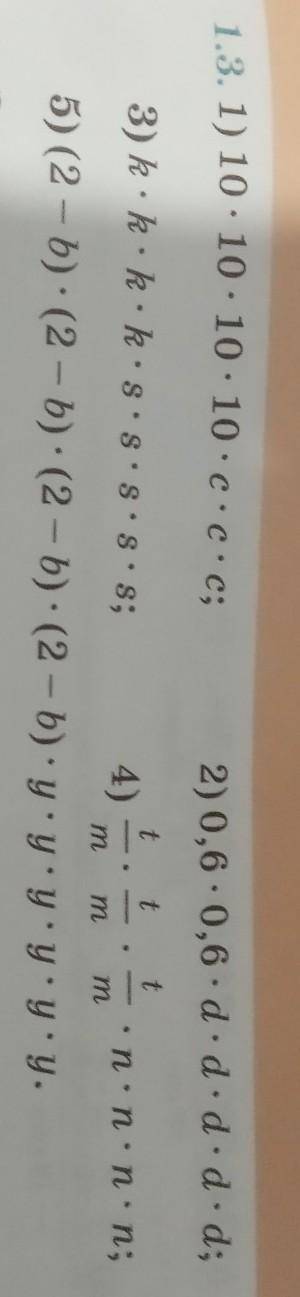 1.3. 1) 10 · 10 · 10 · 10 · c · c · c; 2) 0,6 · 0,6 · d · d · d · d · d;
3) k · k · k · k · s · s · s · s · s; 4) t/m · t/m · t/m · n · n · n · n;
5) (2 – b) · (2 – b) · (2 – b) · y · y · y · y · y · y.